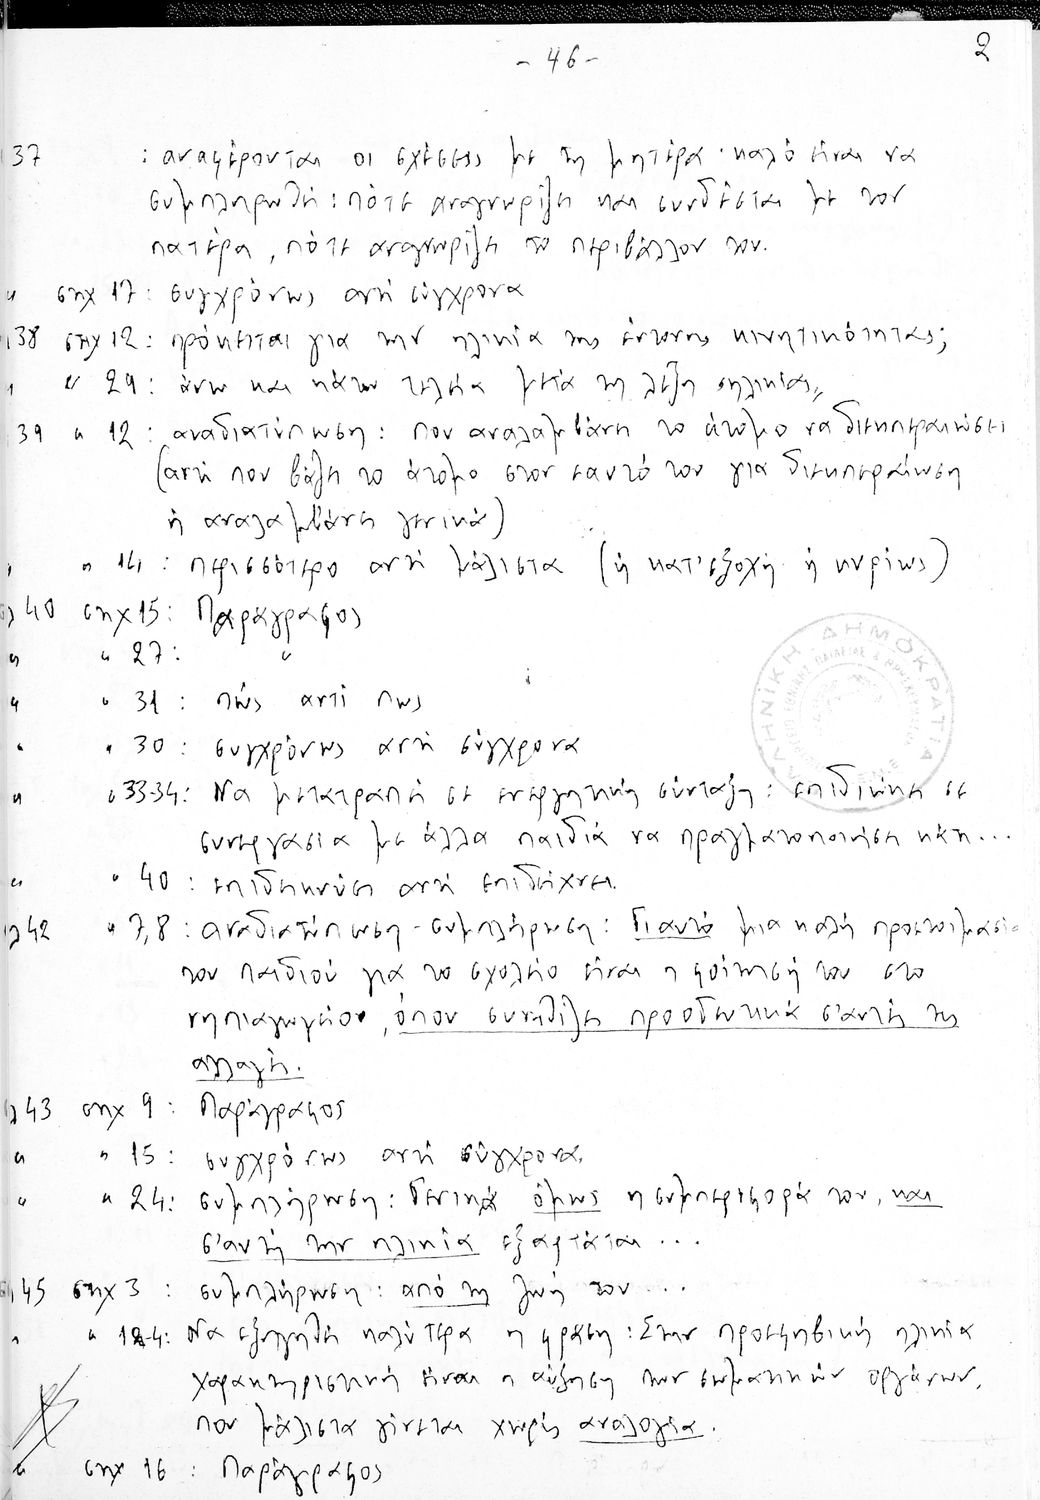 - 46 -
2
37 : αναφέρονται οι σχέσεις με τη μητέρα· καλό είναι να
συμπληρωθεί: πότε αναγνωρίζει και συνδέεται με τον
πατέρα, πότε αναγνωρίζει το περιβάλλον του.
" στιχ 17: συγχρόνως αντί σύγχρονα
38 στιχ 12: πρόκειται για την ηλικία της έντονης κινητικότητας;
" " 29: άνω και κάτω τελεία μετά τη λέξη "ηλικίας"
39 " 12: αναδιατύπωση: που αναλαμβάνει το άτομο να διεκπεραιώσει
(αντί που βάζει το άτομο στον εαυτό του για διεκπεραίωση
ή αναλαμβάνει γενικά)
" " 14: περισσότερο αντί μάλιστα (ή κατ'εξοχή ή κυρίως)
σελ 40 στιχ 15: Παράγραφος
" " 27: "
" " 31: πώς αντί πως
" " 30: συγχρόνως αντί σύγχρονα
" " 33-34: Να μετατραπεί σε ενεργητική σύνταξη: επιδιώκει σε
συνεργασία με άλλα παιδιά να πραγματοποιήσει κάτι...
" " 40: επιδεικνύει αντί επιδείχνει.
σελ 42 " 7,8: αναδιατύπωση-συμπλήρωση: Γιαυτό μια καλή προετοιμασία
του παιδιού για το σχολείο είναι η φοίτησή του στο
νηπιαγωγείο, όπου συνηθίζει προοδευτικά σ'αυτή τη
αλλαγή.
σελ 43 στιχ 9: Παράγραφος
" " 15: συγχρόνως αντί σύγχρονα.
" " 24: συμπλήρωση: Γενικά όμως η συμπεριφορά του, και
σ'αυτή την ηλικία εξαρτάται...
σελ 45 στιχ 3: συμπλήρωση: από τη ζωή του...
" " 12-4: Να εξηγηθεί καλύτερα η φράση: Στην προεφηβική ηλικία
χαρακτηριστική είναι η αύξηση των σωματικών οργάνων,
που μάλιστα γίνεται χωρίς αναλογία.
" στιχ 16: Παράγραφος
ΕΛΛΗΝΙΚΗ ΔΗΜΟΚΡΑΤΙΑ